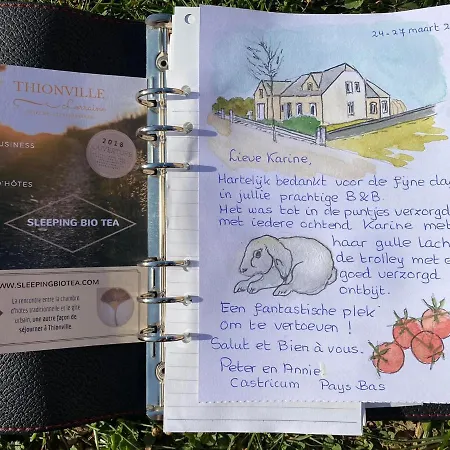 THIONVILLE
Lorraine
BUSINESS
2016
D'HÔTES
SLEEPING BIO TEA
WWW.SLEEPINGBIOTEA.COM
La rencontre entre la chambre
d'hôtes traditionnelle et le gîte
urbain, une autre façon de
séjourner à Thionville.
24-27 maart 2
Lieve Karine,
Hartelijk bedankt voor de fijne dag
in jullie prachtige B&B.
Het was tot in de puntjes verzorgd
met iedere ochtend Karine met
haar gulle lach
de trolley met e
goed verzorgd
ontbijt.
Een fantastische plek
om te vertoeven!
Salut et Bien à vous.
Peter en Annie
Castricum Pays Bas